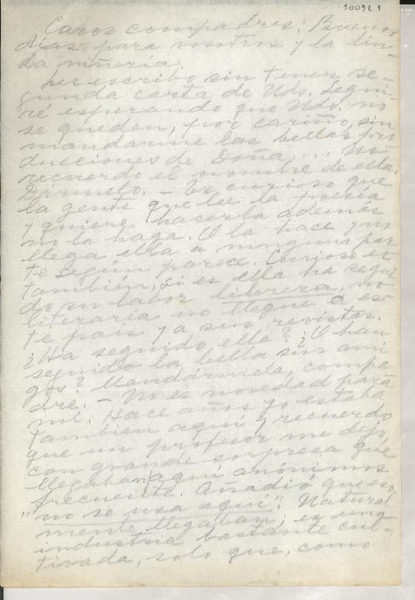 10092.1
Caros compadres: Buenos
días para vosotros y la lin-
da miñoria,
Les escribo sin tener se-
gunda carta de Uds. Segui-
ré esperando que Uds. no
se queden, por cariño, sin
mandarme las bellas pro-
ducciones de Doña.... No
recuerdo el nombre de ella.
Dármelo. - Es curioso que
la gente que lee la poesía
y quiere hacerla además
no la haga. O la hace y no
llega ella a ninguna par-
te según parece. Curioso es
también, si es ella ha segui-
do su labor, que
literaria no llegue a es-
te país y a sus revistas.
¿Ha seguido ella? ¿O han
seguido la bella sin ami-
gos? Mandármela, compa-
dre. - No es novedad para
mí. Hace años yo estaba
también aquí y recuerdo
que un profesor me dijo,
con grande sorpresa que
llegaban aquí anónimos
frecuente. Añadió que eso
"no se usa aquí". Natural-
mente llegaban; es una
industria bastante cul-
tivada, solo que, como